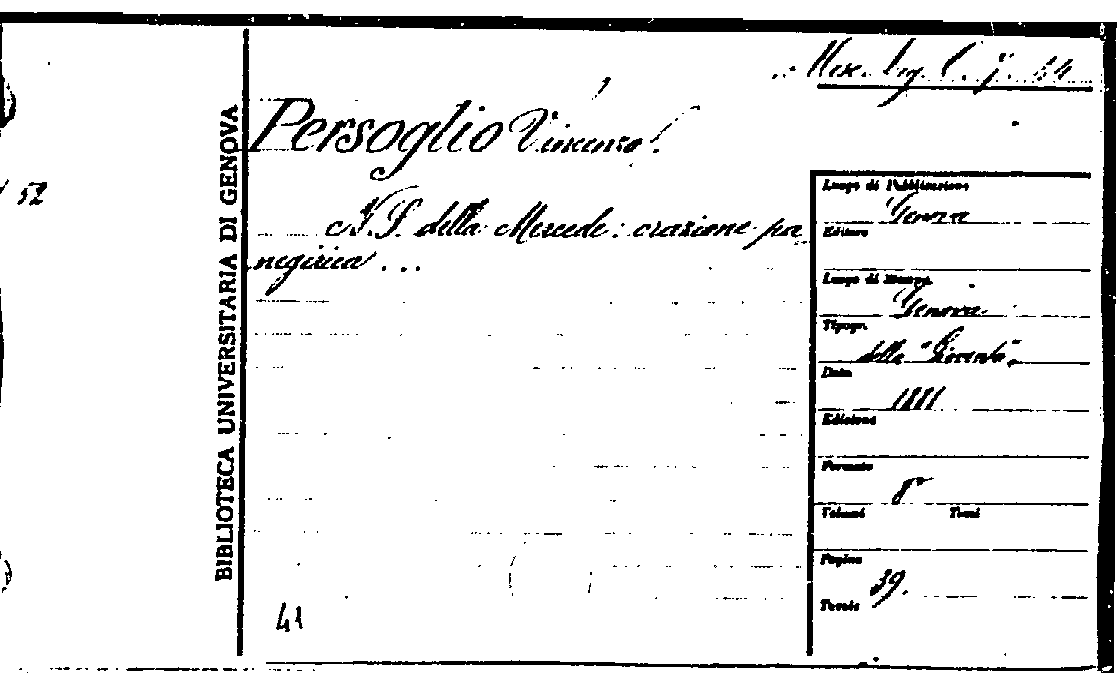 Misc. Lig. C. 7. 54
Persoglio Vincenzo.
N. S. della Mercede: orazione pa
negirica ...
52
BIBLIOTECA UNIVERSITARIA DI GENOVA
41
Luogo di Pubblicazione
Genova
Editore
Luogo di Stampa
Genova
Tipogr.
della "Gioventù"
Data
1881
Edizione
Formato
8°
Volumi Tomi
Pagine
39.
Tavole